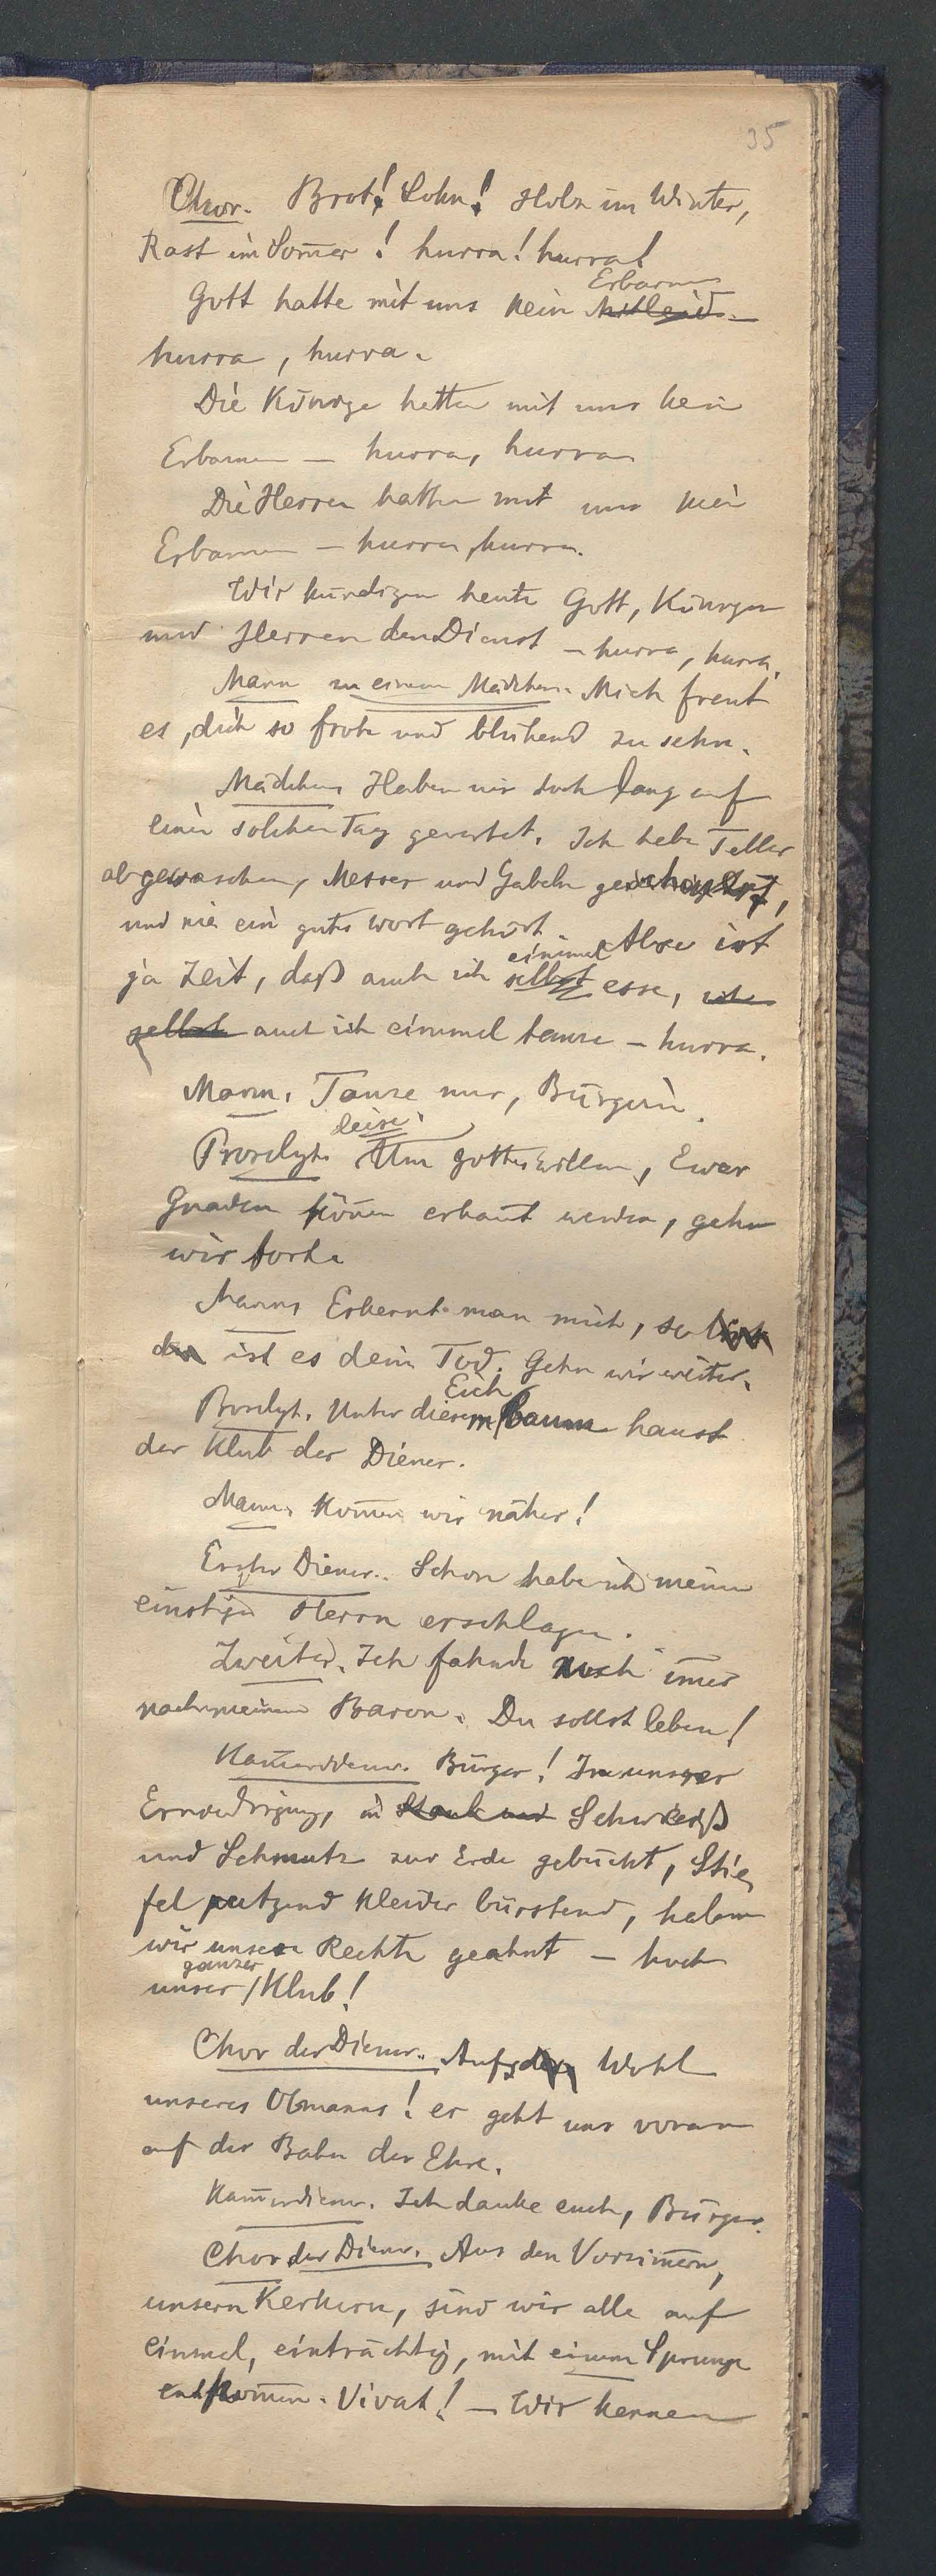 35
Chor. Brot! Lohn! Holz im Winter,
Rast im Som̅er! hurra! hurra!
Erbarmen
Gott hatte mit uns kein Mitleid –
hurra, hurra.
Die Könige hatten mit uns kein
Erbarmen – hurra, hurra
Die Herren hatten mit uns kein
Erbarmen – hurra, hurra.
Wir kündigen heute Gott, Königen
und Herren den Dienst – hurra, hurra.
Mann zu einem Mädchen. Mich freut
es, dich so froh und blühend zu sehn.
Mädchen. Haben wir doch lang auf
einen solchen Tag gewartet. Ich habe Teller
abgewaschen, Messer und Gabeln gescheuert,
und nie ein gutes Wort gehört. Also ist
einmal
ja Zeit, daß auch ich selbst esse, ich
selbst auch ich einmal tanze – hurra.
Mann. Tanze nur, Bürgerin.
leise.
Proselyt. Um Gottes willen, Euer
Gnaden kön̅en erkannt werden, gehn
wir fort.
Mann. Erkennt man mich, so
ist es dein Tod. Gehn wir weiter.
Eich
Proselyt. Unter diesem baum haust
der Klub der Diener.
Mann. Kom̅en wir näher!
Erster Diener. Schon habe ich meinen
einstigen Herrn erschlagen.
Zweiter. Ich fahnde noch im̅er
nach meinem Baron. Du sollst leben!
Kam̅erdiener. Bürger! In unserer
Erniedrigung, in Staub und Schweiß
und Schmutz zur Erde gebückt, Stie
fel putzend Kleider bürstend, haben
wir unsere Rechte geahnt – hoch
ganzer
unser Klub!
Chor der Diener. Aufs Wohl
unseres Obmanns! er geht uns voran
auf der Bahn der Ehre.
Kam̅erdiener. Ich danke euch, Bürger.
Chor der Diener. Aus den Vorzim̅ern,
unsern Kerkern, sind wir alle auf
einmal, einträchtig, mit einem Sprunge
entkom̅en. Vivat! – Wir kennen